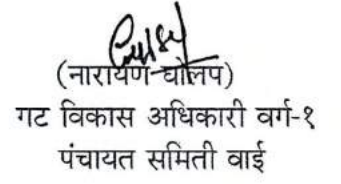 (नारायण घोलप)
गट विकास अधिकारी वर्ग-१
पंचायत समिती वाई